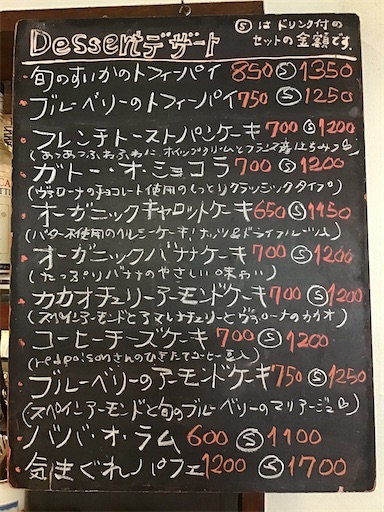 Dessertデザート
Ⓢはドリンク付の
セットの金額です。
旬のすいかのトフィーパイ 850 Ⓢ 1350
ブルーベリーのトフィーパイ 750 Ⓢ 1250
フレンチトーストパンケーキ 700 Ⓢ 1200
(あつあつふわふわに ホイップクリームとフランス産はちみつ)
ガトー・オ・ショコラ 700 Ⓢ 1200
(ヴァローナのチョコレート使用のしっとりクラシックタイプ)
オーガニックキャロットケーキ 650 Ⓢ 1150
(バター不使用のヘルシーケーキ!ナッツ&ドライフルーツ入)
オーガニックバナナケーキ 700 Ⓢ 1200
(たっぷりバナナのやさしい味わい)
カカオチェリーアーモンドケーキ 700 Ⓢ 1200
(スペインアーモンドとアマレナチェリーとヴァローナのカカオ)
コーヒーチーズケーキ 700 Ⓢ 1200
(redpoisonさんのひきたてコーヒー豆入)
ブルーベリーのアーモンドケーキ 750 Ⓢ 1250
(スペインアーモンドと旬のブルーベリーのマリアージュ)
ババ・オ・ラム 600 Ⓢ 1100
気まぐれパフェ 1200 Ⓢ 1700